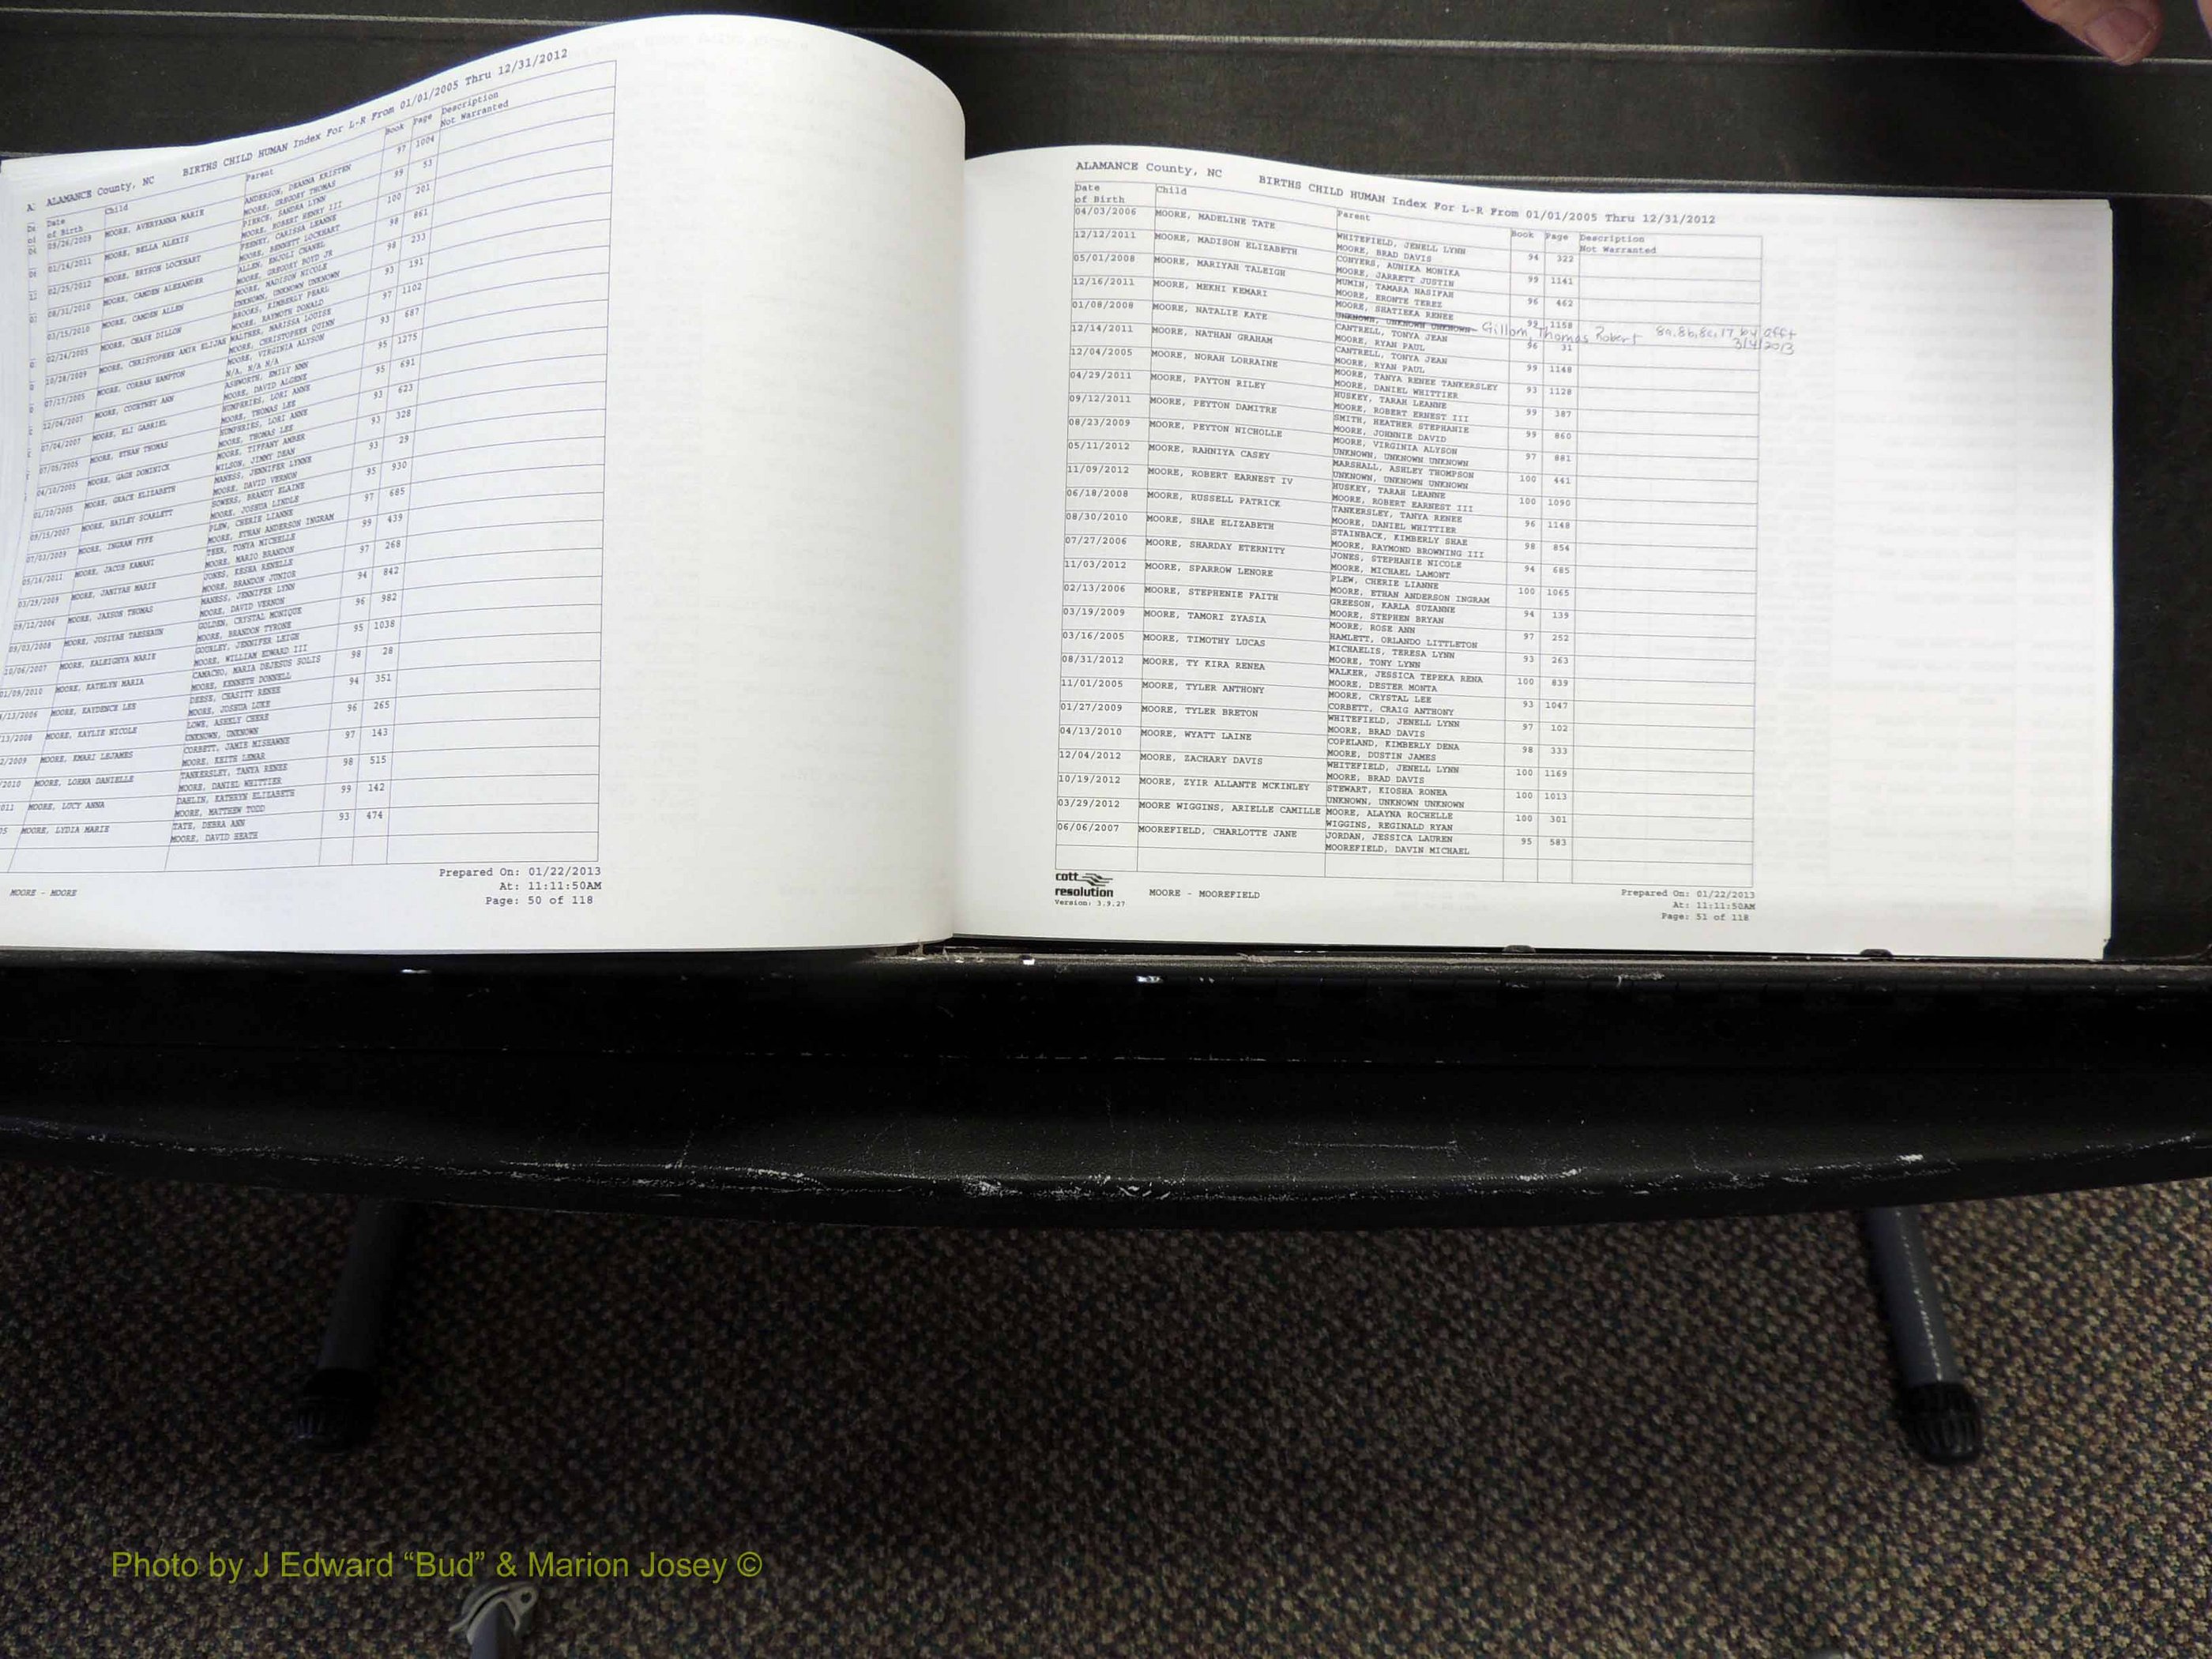 ALAMANCE County, NC BIRTHS CHILD HUMAN Index For L-R From 01/01/2005 Thru 12/31/2012
Date of Birth Child Parent Book Page Description Not Warranted
MOORE, AVERYANNA MARIE ANDERSON, DEANNA KRISTEN 97 1004
MOORE, GREGORY THOMAS
01/14/2011 MOORE, BELLA ALEXIS PIERCE, SANDRA LYNN 99 53
MOORE, ROBERT HENRY III
02/25/2012 MOORE, BRYSON LOCKHART FEENEY, CARISSA LEANNE 100 201
MOORE, BENNETT LOCKHART
08/31/2010 MOORE, CAMDEN ALEXANDER ALLEN, ENJOLI CHANEL 98 861
MOORE, GREGORY BOYD JR
03/15/2010 MOORE, CAMDEN ALLEN MOORE, MADISON NICOLE 98 233
UNKNOWN, UNKNOWN UNKNOWN
02/24/2005 MOORE, CHASE DILLON BROOKS, KIMBERLY PEARL 93 191
MOORE, RAYMOTH DONALD
10/28/2009 MOORE, CHRISTOPHER AMIR ELIJAH WALTHER, MARISSA LOUISE 97 1102
MOORE, CHRISTOPHER QUINN
07/17/2005 MOORE, CORBAN HAMPTON MOORE, VIRGINIA ALYSON 93 687
N/A, N/A N/A
12/04/2007 MOORE, COURTNEY ANN ASHWORTH, EMILY NMN 95 1275
MOORE, DAVID ALGENE
07/04/2007 MOORE, ELI GABRIEL HUMPHRIES, LORI ANNE 95 691
MOORE, THOMAS LEE
07/05/2005 MOORE, ETHAN THOMAS HUMPHRIES, LORI ANNE 93 623
MOORE, THOMAS LEE
04/10/2005 MOORE, GAGE DOMINICK MOORE, TIFFANY AMBER 93 328
WILSON, JIMMY DEAN
01/10/2005 MOORE, GRACE ELIZABETH MANESS, JENNIFER LYNNE 93 29
MOORE, DAVID VERNON
09/15/2007 MOORE, HAILEY SCARLETT SOWERS, BRANDY ELAINE 95 930
MOORE, JOSHUA LINDLE
07/03/2009 MOORE, INGRAM FYFE PLEW, CHERIE LIANNE 97 685
MOORE, ETHAN ANDERSON INGRAM
05/16/2011 MOORE, JACOB KAMANI TEER, TONYA MICHELLE 99 439
MOORE, MARIO BRANDON
03/29/2009 MOORE, JANIYAH MARIE JONES, KESHA RENELLE 97 268
MOORE, BRANDON JUNIOR
09/12/2006 MOORE, JAXSON THOMAS MANESS, JENNIFER LYNN 94 842
MOORE, DAVID VERNON
09/03/2008 MOORE, JOSIYAH TAESEAUN GOLDEN, CRYSTAL MONIQUE 96 982
MOORE, BRANDON TYRONE
10/06/2007 MOORE, KALEIGHYA MARIE GOURLEY, JENNIFER LEIGH 95 1038
MOORE, WILLIAM EDWARD III
01/09/2010 MOORE, KATELYN MARIA CAMACHO, MARIA DEJESUS SOLIS 98 28
MOORE, KENNETH DONNELL
/13/2006 MOORE, KAYDENCE LEE DEESE, CHASITY RENEE 94 351
MOORE, JOSHUA LUKE
13/2008 MOORE, KAYLIE NICOLE LOWE, ASHELY CHERE 96 265
UNKNOWN, UNKNOWN
2/2009 MOORE, KMARI LEJAMES CORBETT, JAMIE MISHANNE 97 143
MOORE, KEITH LEMAR
/2010 MOORE, LORNA DANIELLE TANKERSLEY, TANYA RENEE 98 515
MOORE, DANIEL WHITTIER
011 MOORE, LUCY ANNA DAHLIN, KATHRYN ELIZABETH 99 142
MOORE, MATTHEW TODD
05 MOORE, LYDIA MARIE TATE, DEBRA ANN 93 474
MOORE, DAVID HEATH
MOORE - MOORE
Prepared On: 01/22/2013
At: 11:11:50AM
Page: 50 of 118
ALAMANCE County, NC BIRTHS CHILD HUMAN Index For L-R From 01/01/2005 Thru 12/31/2012
Date of Birth Child Parent Book Page Description Not Warranted
04/03/2006 MOORE, MADELINE TATE WHITEFIELD, JENELL LYNN 94 322
MOORE, BRAD DAVIS
12/12/2011 MOORE, MADISON ELIZABETH CONYERS, AUNIKA MONIKA 99 1141
MOORE, JARRETT JUSTIN
05/01/2008 MOORE, MARIYAH TALEIGH MUMIN, TAMARA NASIFAH 96 462
MOORE, ERONTE TEREZ
12/16/2011 MOORE, MEKHI KEMARI MOORE, SHATIEKA RENEE 99 1158
UNKNOWN, UNKNOWN UNKNOWN Gillom, Thomas Robert 8a,8b,8c,17 by afft 3/4/2013
01/08/2008 MOORE, NATALIE KATE CANTRELL, TONYA JEAN 96 31
MOORE, RYAN PAUL
12/14/2011 MOORE, NATHAN GRAHAM CANTRELL, TONYA JEAN 99 1148
MOORE, RYAN PAUL
12/04/2005 MOORE, NORAH LORRAINE MOORE, TANYA RENEE TANKERSLEY 93 1128
MOORE, DANIEL WHITTIER
04/29/2011 MOORE, PAYTON RILEY HUSKEY, TARAH LEANNE 99 387
MOORE, ROBERT ERNEST III
09/12/2011 MOORE, PEYTON DAMITRE SMITH, HEATHER STEPHANIE 99 860
MOORE, JOHNNIE DAVID
08/23/2009 MOORE, PEYTON NICHOLLE MOORE, VIRGINIA ALYSON 97 881
UNKNOWN, UNKNOWN UNKNOWN
05/11/2012 MOORE, RAHNIYA CASEY MARSHALL, ASHLEY THOMPSON 100 441
UNKNOWN, UNKNOWN UNKNOWN
11/09/2012 MOORE, ROBERT EARNEST IV HUSKEY, TARAH LEANNE 100 1090
MOORE, ROBERT EARNEST III
06/18/2008 MOORE, RUSSELL PATRICK TANKERSLEY, TANYA RENEE 96 1148
MOORE, DANIEL WHITTIER
08/30/2010 MOORE, SHAE ELIZABETH STAINBACK, KIMBERLY SHAE 98 854
MOORE, RAYMOND BROWNING III
07/27/2006 MOORE, SHARDAY ETERNITY JONES, STEPHANIE NICOLE 94 685
MOORE, MICHAEL LAMONT
11/03/2012 MOORE, SPARROW LENORE PLEW, CHERIE LIANNE 100 1065
MOORE, ETHAN ANDERSON INGRAM
02/13/2006 MOORE, STEPHENIE FAITH GREESON, KARLA SUZANNE 94 139
MOORE, STEPHEN BRYAN
03/19/2009 MOORE, TAMORI ZYASIA MOORE, ROSE ANN 97 252
HAMLETT, ORLANDO LITTLETON
03/16/2005 MOORE, TIMOTHY LUCAS MICHAELIS, TERESA LYNN 93 263
MOORE, TONY LYNN
08/31/2012 MOORE, TY KIRA RENEA WALKER, JESSICA TEPEKA RENA 100 839
MOORE, DESTER MONTA
11/01/2005 MOORE, TYLER ANTHONY MOORE, CRYSTAL LEE 93 1047
CORBETT, CRAIG ANTHONY
01/27/2009 MOORE, TYLER BRETON WHITEFIELD, JENELL LYNN 97 102
MOORE, BRAD DAVIS
04/13/2010 MOORE, WYATT LAINE COPELAND, KIMBERLY DENA 98 333
MOORE, DUSTIN JAMES
12/04/2012 MOORE, ZACHARY DAVIS WHITEFIELD, JENELL LYNN 100 1169
MOORE, BRAD DAVIS
10/19/2012 MOORE, ZYIR ALLANTE MCKINLEY STEWART, KIOSHA RONEA 100 1013
UNKNOWN, UNKNOWN UNKNOWN
03/29/2012 MOORE WIGGINS, ARIELLE CAMILLE MOORE, ALAYNA ROCHELLE 100 301
WIGGINS, REGINALD RYAN
06/06/2007 MOOREFIELD, CHARLOTTE JANE JORDAN, JESSICA LAUREN 95 583
MOOREFIELD, DAVIN MICHAEL
cott
resolution
Version: 3.9.27
MOORE - MOOREFIELD
Prepared On: 01/22/2013
At: 11:11:50AM
Page: 51 of 118
Photo by J Edward “Bud” & Marion Josey ©